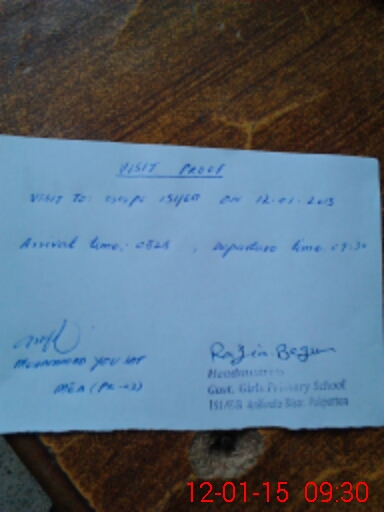 VISIT PROOF
VISIT TO: GGPS 151/6R ON 12-01-2015
Arrival time:- 0828, Departure time: 09:30
MUHAMMAD YOUSAF
MEA (PK-02)
Razia Begum
Headmistress
Govt. Girls Primary School
151/6R
12-01-15 09:30